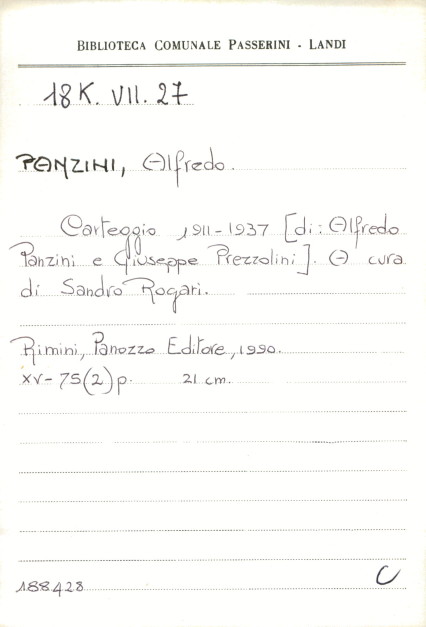 BIBLIOTECA COMUNALE PASSERINI - LANDI
18 K. VII. 27
PANZINI, Alfredo.
Carteggio 1911-1937 [di: Alfredo
Panzini e Giuseppe Prezzolini]. A cura
di Sandro Rogari.
Rimini, Panozzo Editore, 1990.
XV-75(2)p. 21 cm.
188428
C